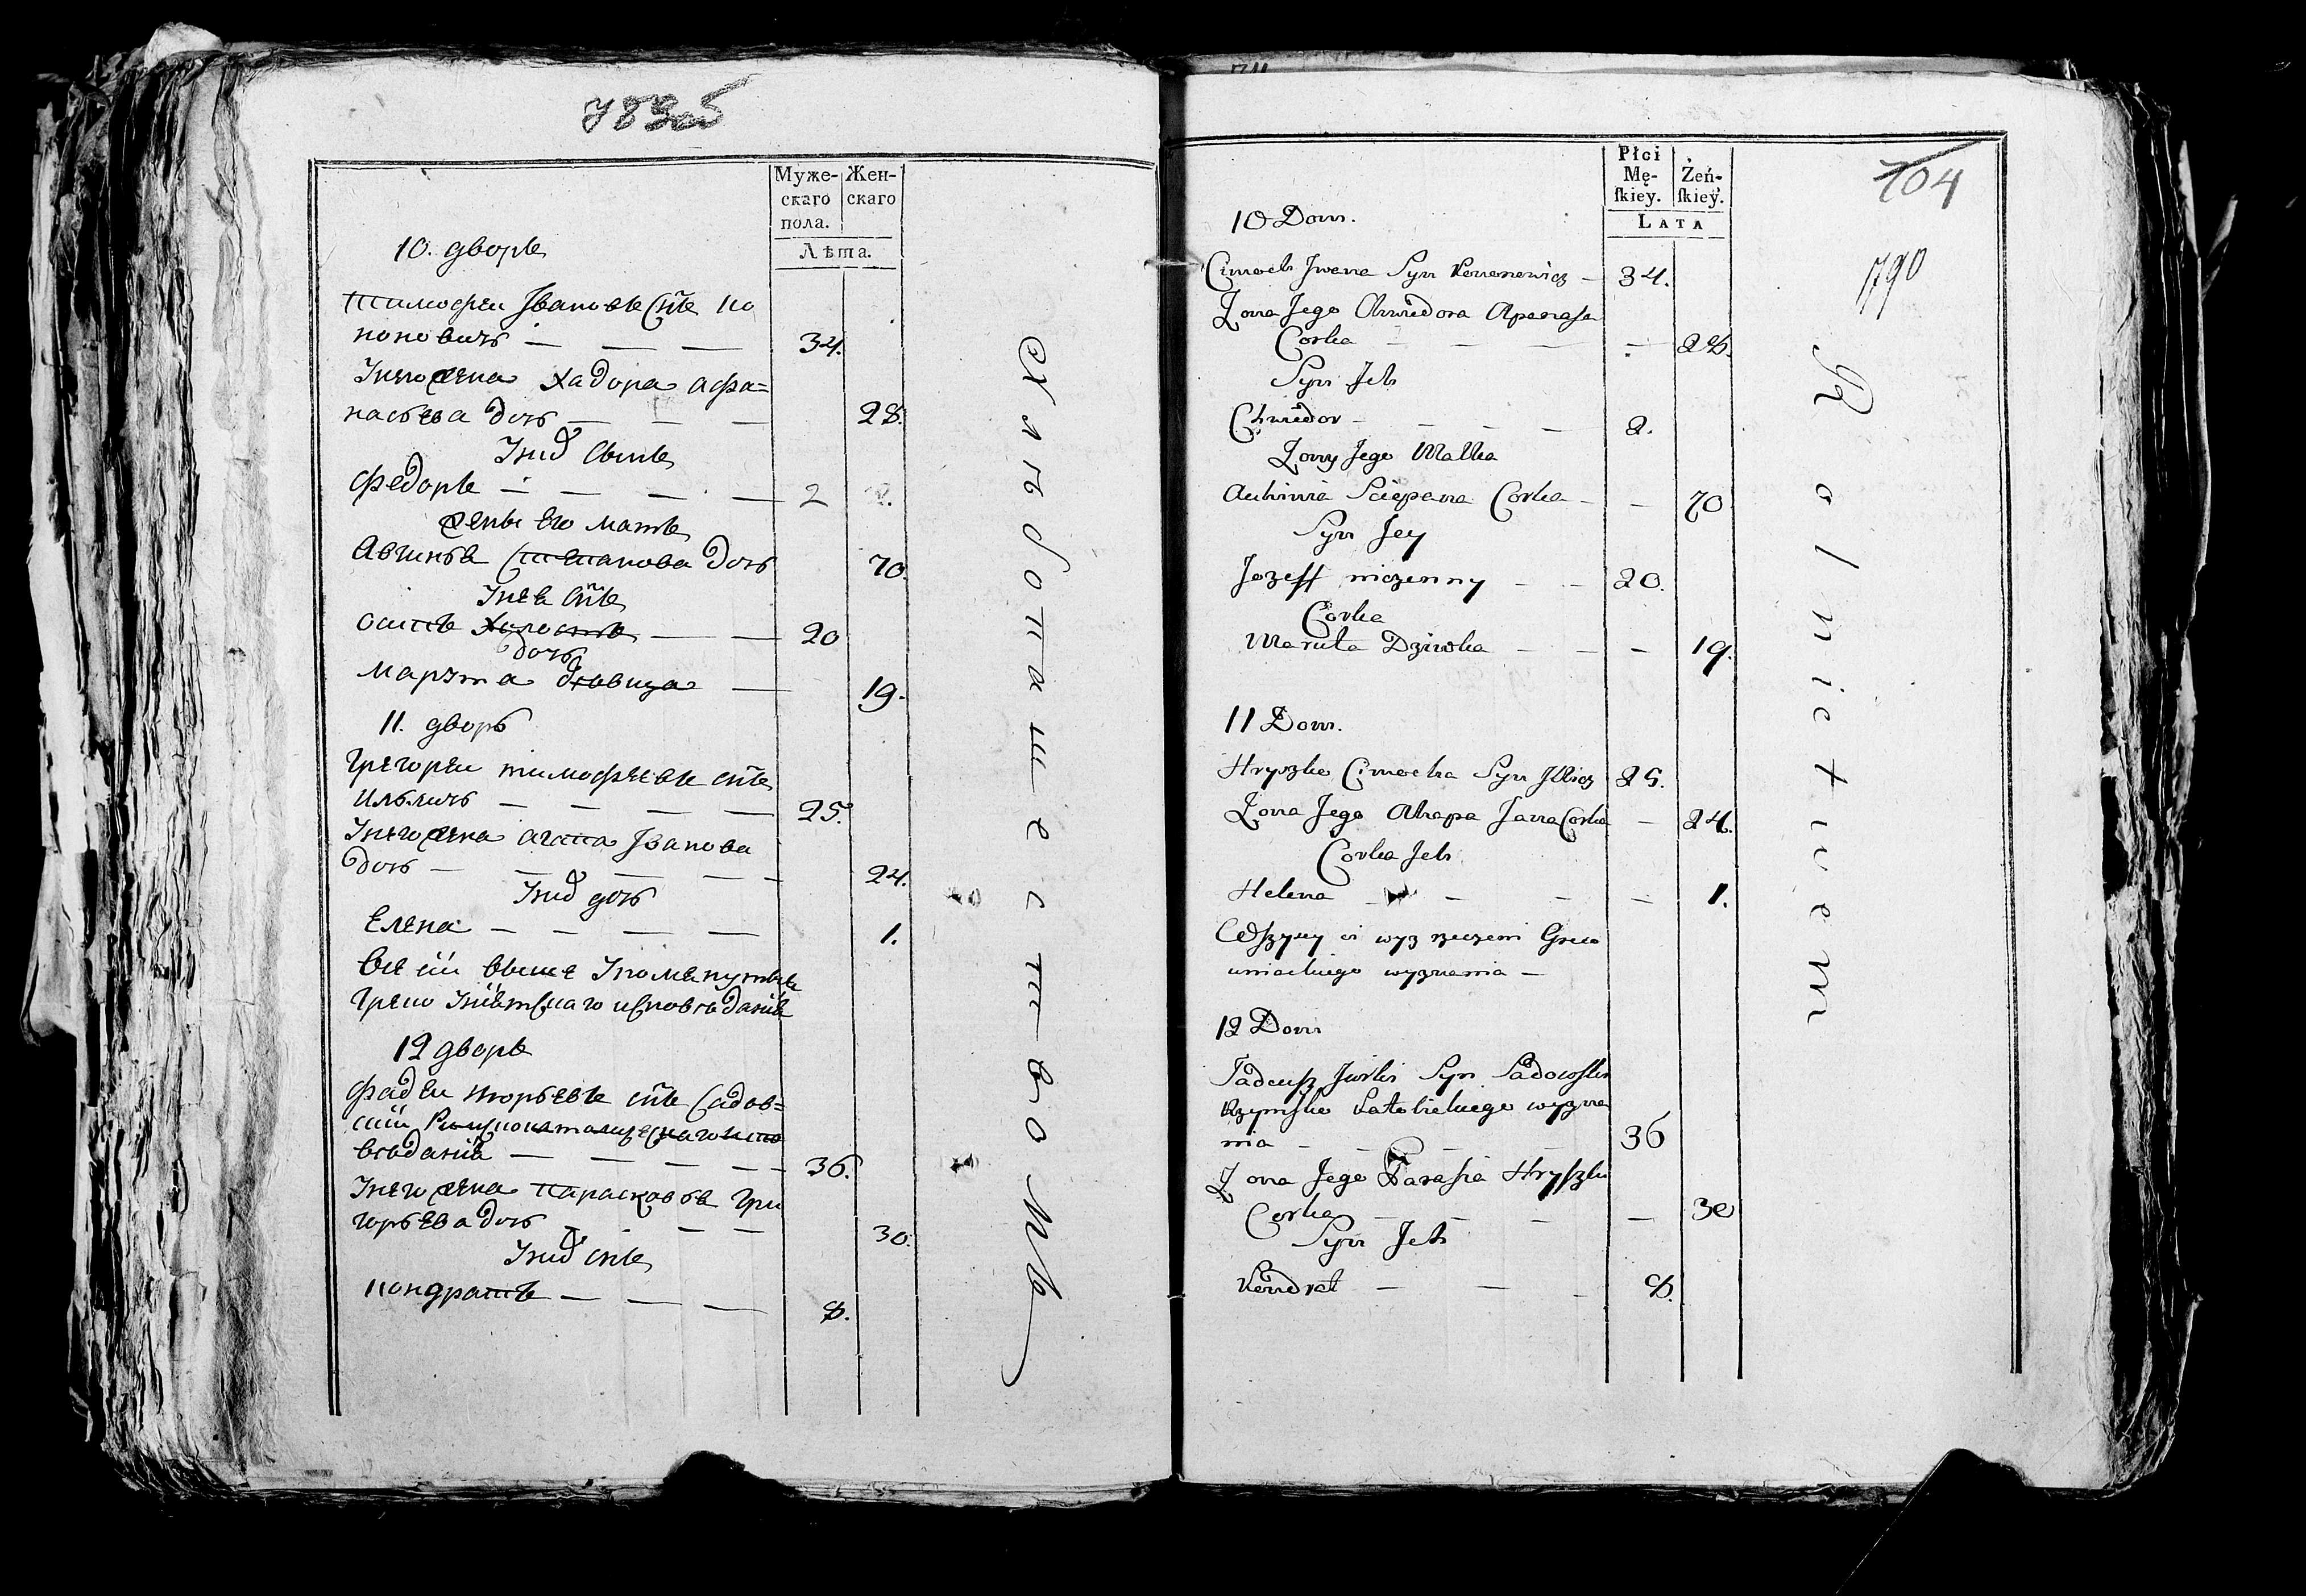 789об
Муже-
скаго
пола.
Жен-
скаго
Лѣта.
10. дворъ
Тимофеи Ивановъ Снъ Ко
коновичъ — — — 34.
У него жена Хадора Афа=
насьева дочь — — — 28.
У них сынъ
Федоръ — — — — 2
жены Его мать
Авгинья Степанова дочь 70.
У нея Снъ
осипъ Холостъ — — 20
дочь
Марута девица — 19.
11. дворъ
Григореи тимофеевъ снъ
Ильичъ — — — — 25.
У него жена агапа Иванова
дочь — — — — — 24.
У них дочь
Елена — — — — 1.
Все сии выше Упомянутые
Греко Униятскаго исповедания
12 дворъ
Фадеи Юрьевъ снъ Садов=
скии Римскокатолическаго испо
ведания — — — — 36.
У него жена Парасковья Гри
горьева дочь — — — 30.
У них снъ
кондратъ — — — 8.
Хлебопашеством
Płci
Mę-
ſkiey.
Żeń-
ſkiey.
LATA
704
790
10 Dom.
Cimoch Iwana Syn Kononowicz — 34.
Zona Jego Chwiedora Apanasa
Corka — — — — 28.
Syn Ich
Chwiedor — — — — 2.
Zony Jego Matka
Auhinia Sciepana Corka — — 70
Syn Jey
Jozeff niezenny — — 20.
Corka
Maruta Dziewka — — — 19.
11 Dom.
Hryszko Cimocha Syn Illicz 25.
Zona Jego Ahapa Jana Corka — 24.
Corka Ich
Helena — — — — 1.
Ci wszyscy wyz rzeczeni Greco
uniackiego wyznania —
12 Dom
Tadeusz Jurki Syn Sadowski
Rzymsko Katolickiego wyzna
nia — — — — 36
Zona Jego Parasia Hryszki
Corka — — — — 30
Syn Ich
Kondrat — — — 8.
Rolnictwem